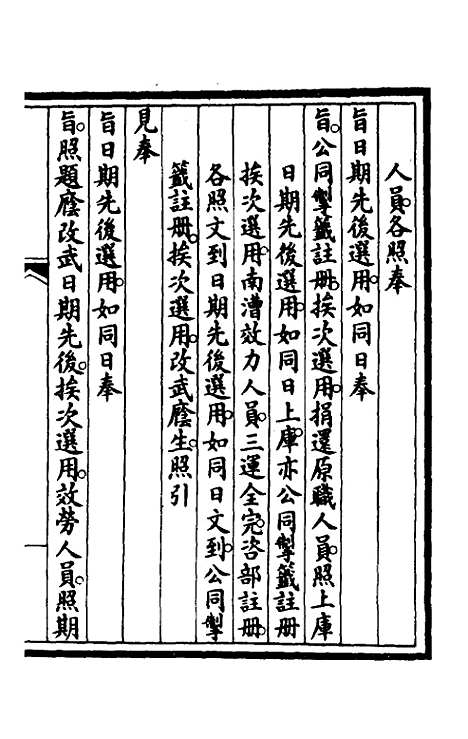 人員。各照奉
旨日期先後選用。如同日奉
旨。公同掣籤註册。挨次選用。捐還原職人員。照上庫
日期先後選用。如同日上庫。亦公同掣籤註册
挨次選用。南漕效力人員。三運全完。咨部註册。
各照文到日期先後選用。如同日文到。公同掣
籤註册。挨次選用。改武廕生。照引
見奉
旨日期先後選用。如同日奉
旨。照題廕改武日期先後。挨次選用。效勞人員。照期